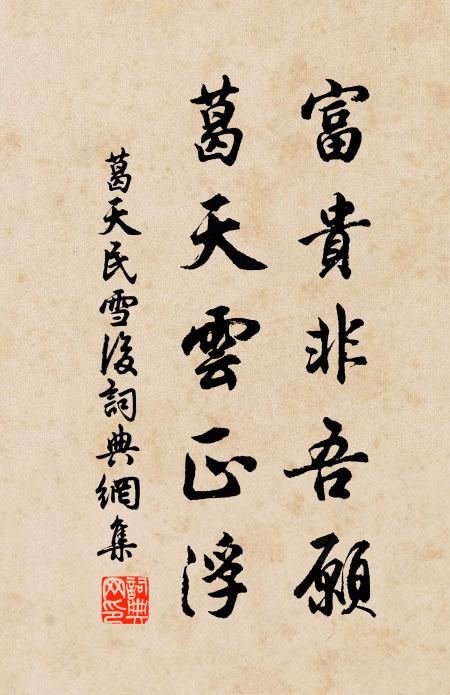 富貴非吾願
葛天雲正浮
葛天民雪後詞典網集
詞典網印